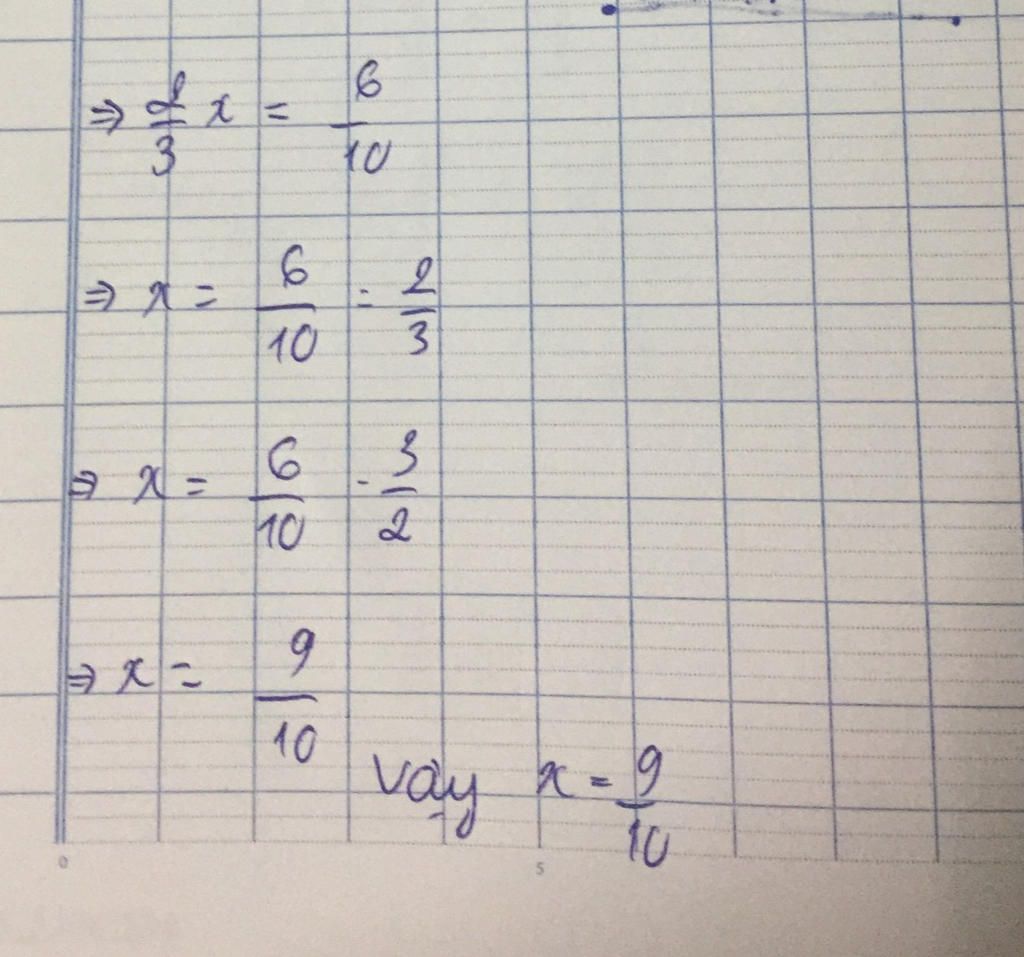 ⇒ 2/3 x = 6/10
⇒ x = 6/10 : 2/3
⇒ x = 6/10 . 3/2
⇒ x = 9/10
Vậy x = 9/10
0 5